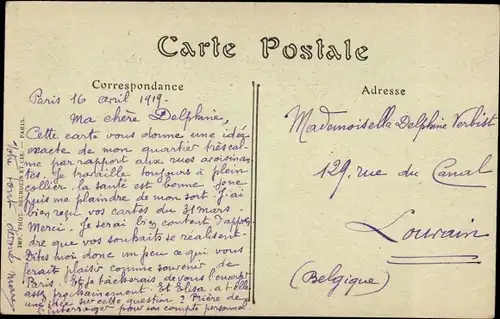 Carte Postale
Correspondance
Adresse
Paris 16 avril 1919.
Ma chère Delphine,
Cette carte vous donne une idée
exacte de mon quartier
me par rapport aux rues avoisinan-
tes. Je travaille toujours à plein
collier. la santé est bonne je ne
puis me plaindre de mon sort. J'ai
bien reçu vos cartes du 31 mars
Merci. Je serai bien content d'appren-
dre que vos souhaits se réalisent.
Dites moi donc un peu ce qui vous
ferait plaisir comme souvenir de
Paris. Et je tâcherais de vous l'envoyer
assez prochainement. Et Elisa, a t'elle
une idée sur cette question? Prière de
l'interroger pour son compte personnel.
Mademoiselle Delphine Verbist
129, rue du Canal
Louvain
(Belgique)
IMP. PHOT. NEURDEIN ET CIE. — PARIS.